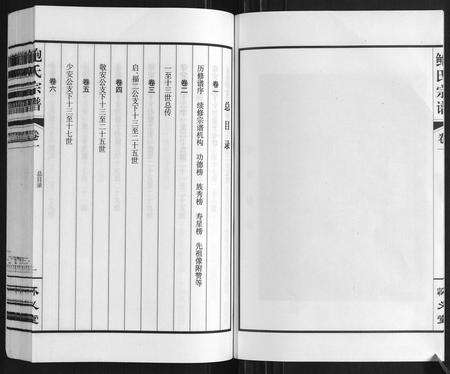 鲍氏宗谱
卷一
义堂
总目录
卷一
历修谱序 续修宗谱机构 功德榜 族秀榜 寿星榜 先祖像附赞等
卷二
一至十三世总传
卷三
启、二公支下十三至二十五世
卷四
敬安公支下十三至二十五世
卷五
少安公支下十三至十七世
卷六
鲍氏宗谱
卷一
总目录
义堂